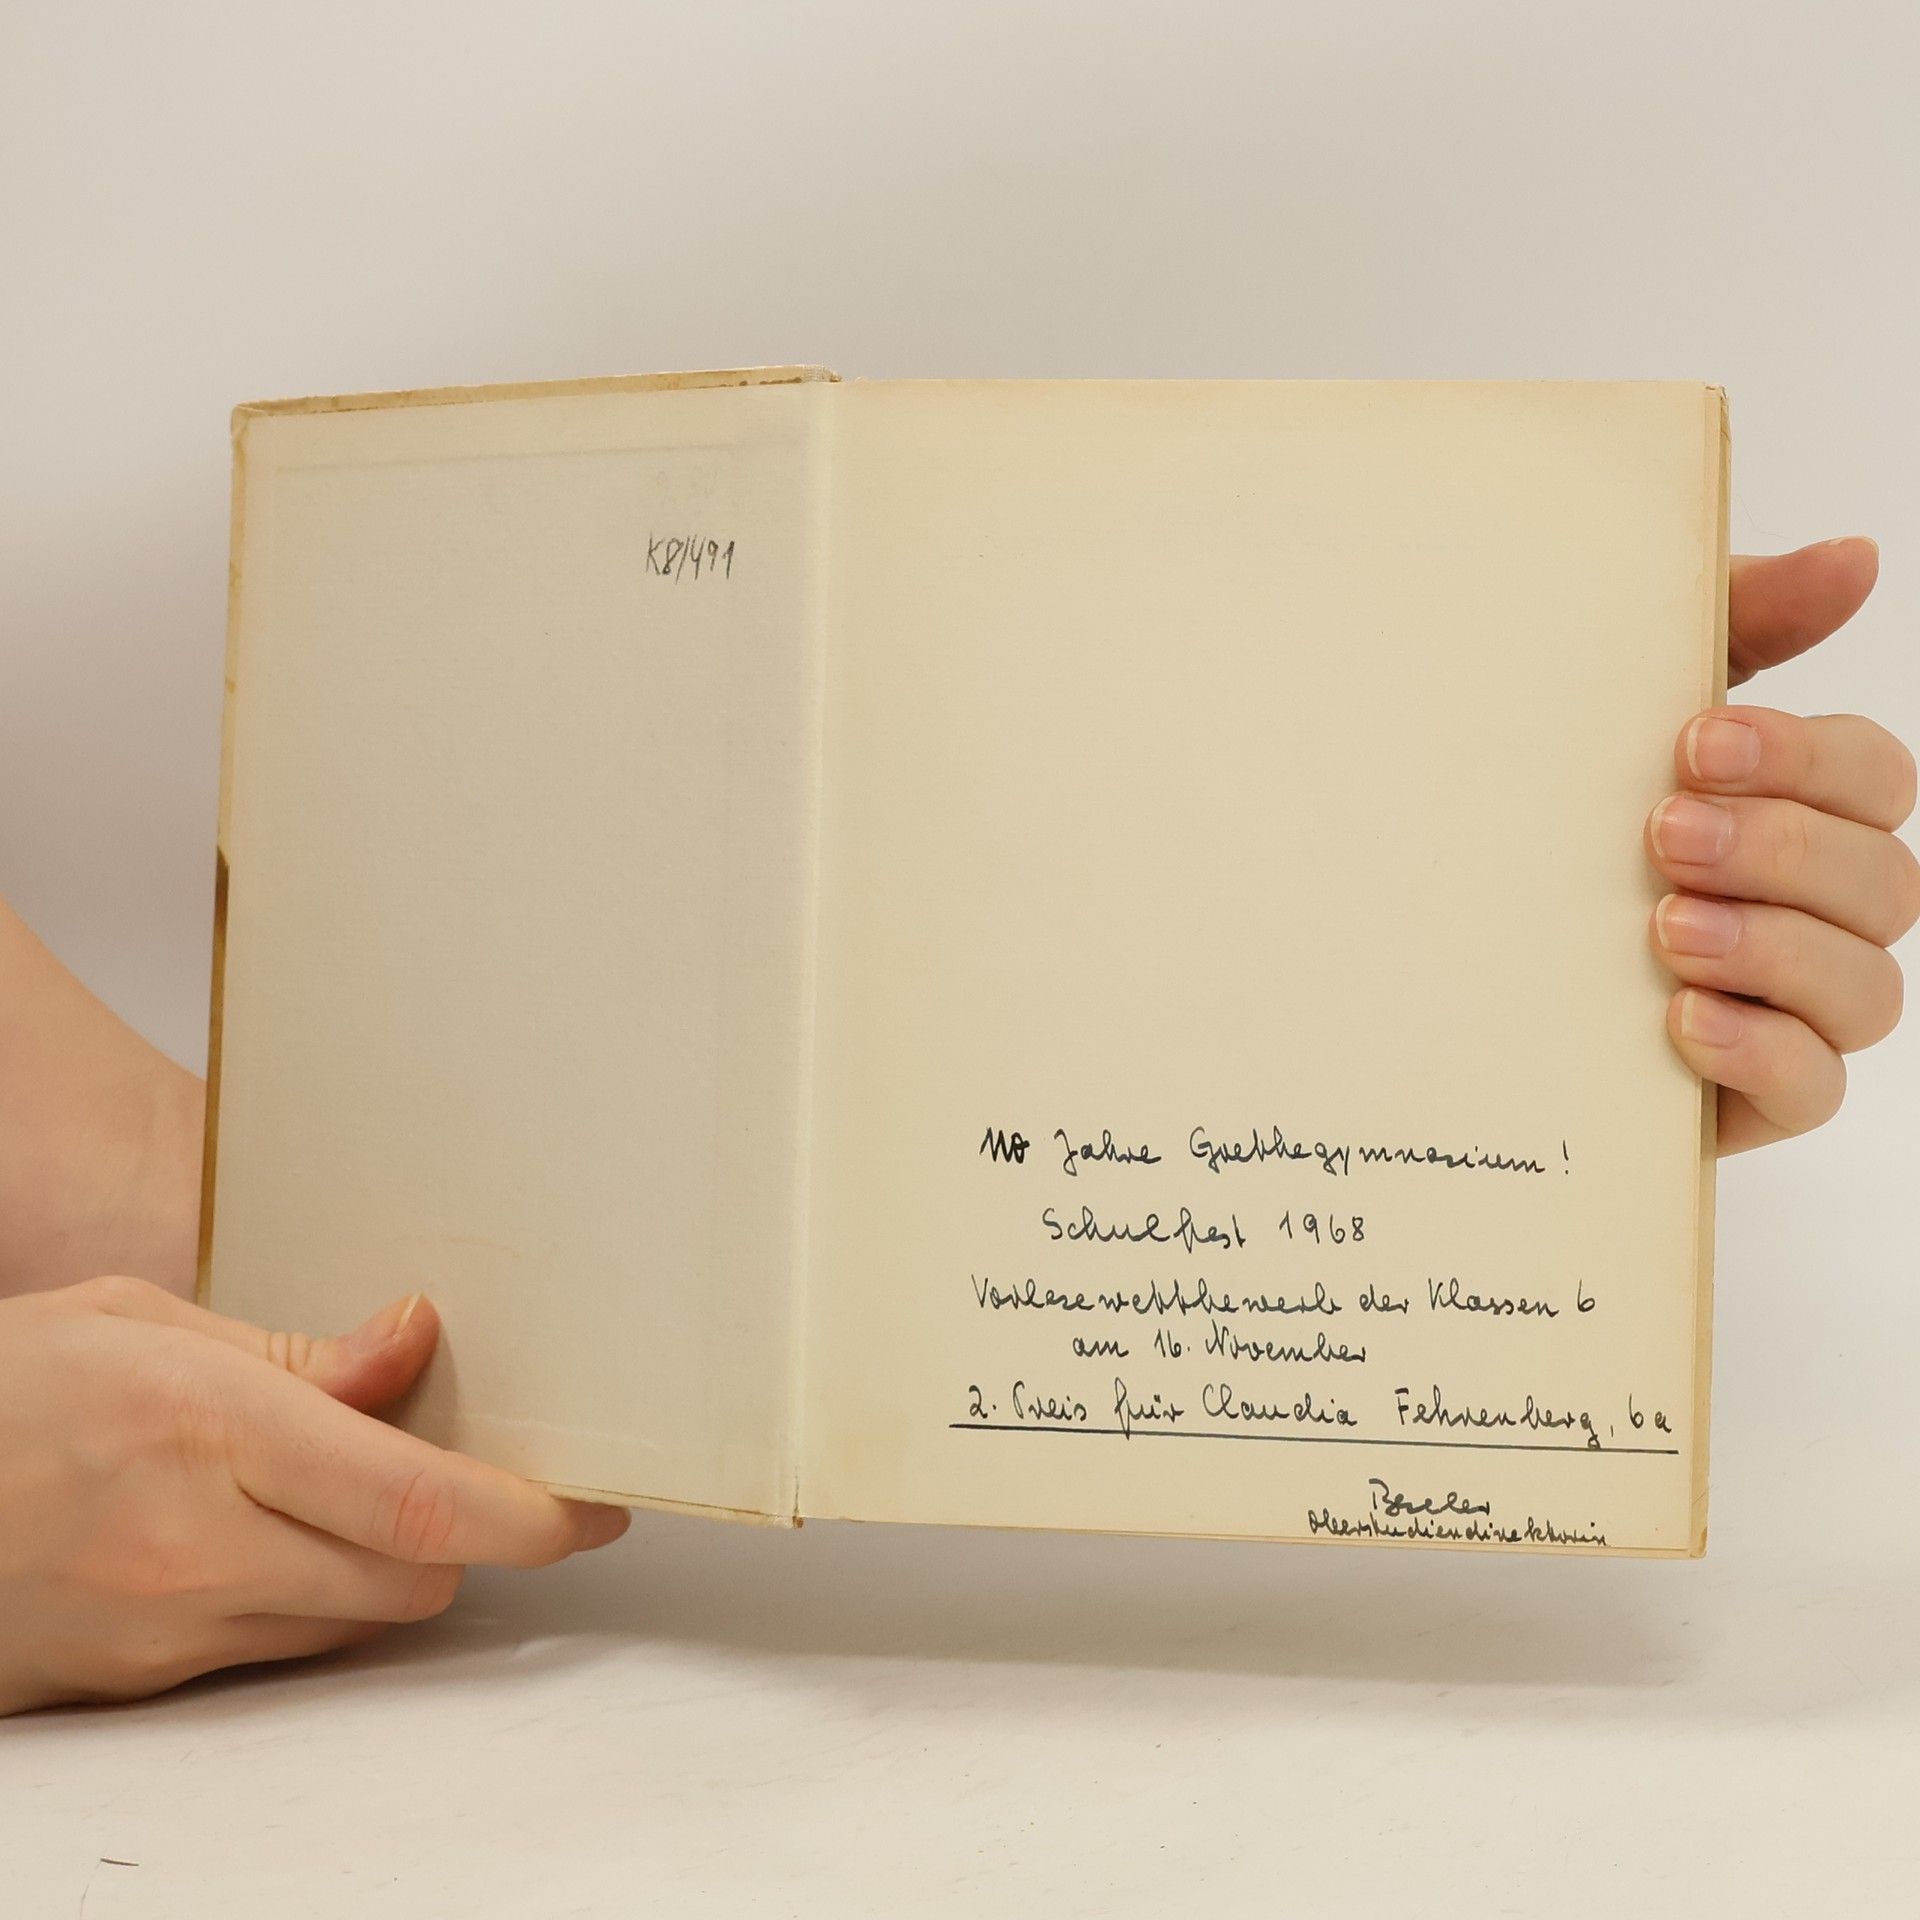 K8/491
110 Jahre Goethegymnasium!
Schulfest 1968
Vorlesewettbewerb der Klassen 6
am 16. November
2. Preis für Claudia Fehrenberg, 6a
Oberstudiendirektorin